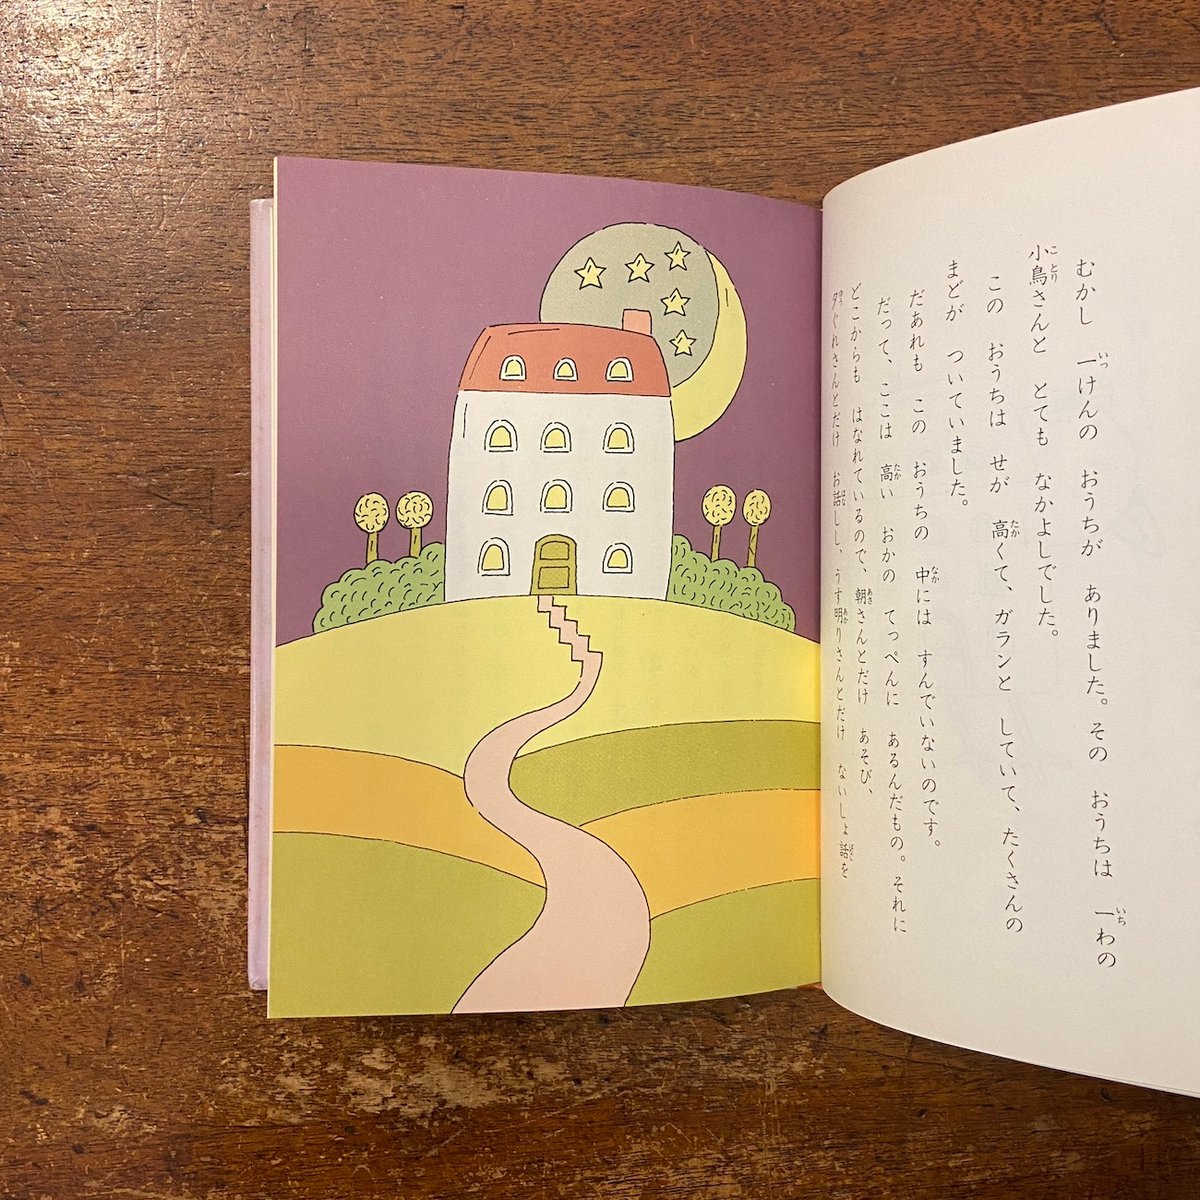 むかし　一けんの　おうちが　ありました。その　おうちは　一わの
小鳥さんと　とても　なかよしでした。
この　おうちは　せが　高くて、ガランと　していて、たくさんの
まどが　ついていました。
だあれも　この　おうちの　中には　すんでいないのです。
だって、ここは　高い　おかの　てっぺんに　あるんだもの。それに
どこからも　はなれているので、朝さんとだけ　あそび、
夕ぐれさんとだけ　お話しし、うす明りさんとだけ　ないしょ話を